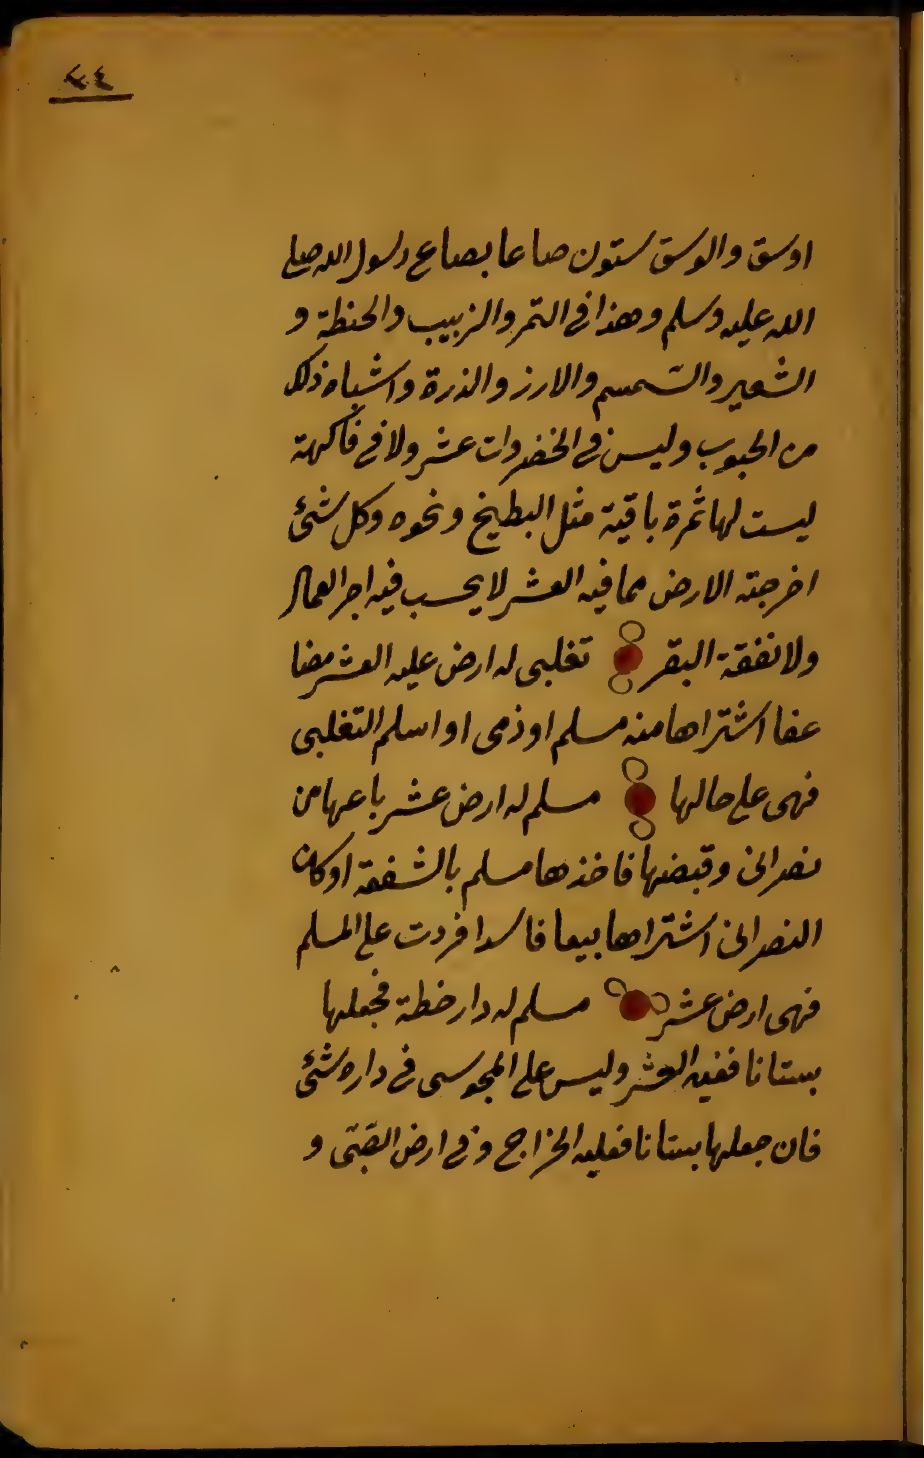 ٧٤
اوسق والوسق ستون صاعا بصاع رسول الله صلى
الله عليه وسلم وهذا في التمر والزبيب والحنطة و
الشعير والسّمسم والارز والذرة واشباه ذلك
من الحبوب وليس في الخضروات عشر ولا في فاكهة
ليست لها ثمرة باقية مثل البطيخ ونحوه وكل شئ
اخرجته الارض مما فيه العشر لا يحسب فيه اجر العمال
ولا نفقة البقر تغلبى له ارض عليه العشر مضا
عفا اشتراها منه مسلم او ذمى او اسلم التغلبى
فهى على حالها مسلم له ارض عشر باعها من
نصرانى وقبضها فاخذها مسلم بالشفعة او كان
النصرانى اشتراها بيعا فاسدا فردت على المسلم
فهى ارض عشر مسلم له دار خطة فجعلها
بستانا ففيه العشر وليس على المجوسى في داره شئ
فان جعلها بستانا فعليه الخراج وفى ارض الصّبى و